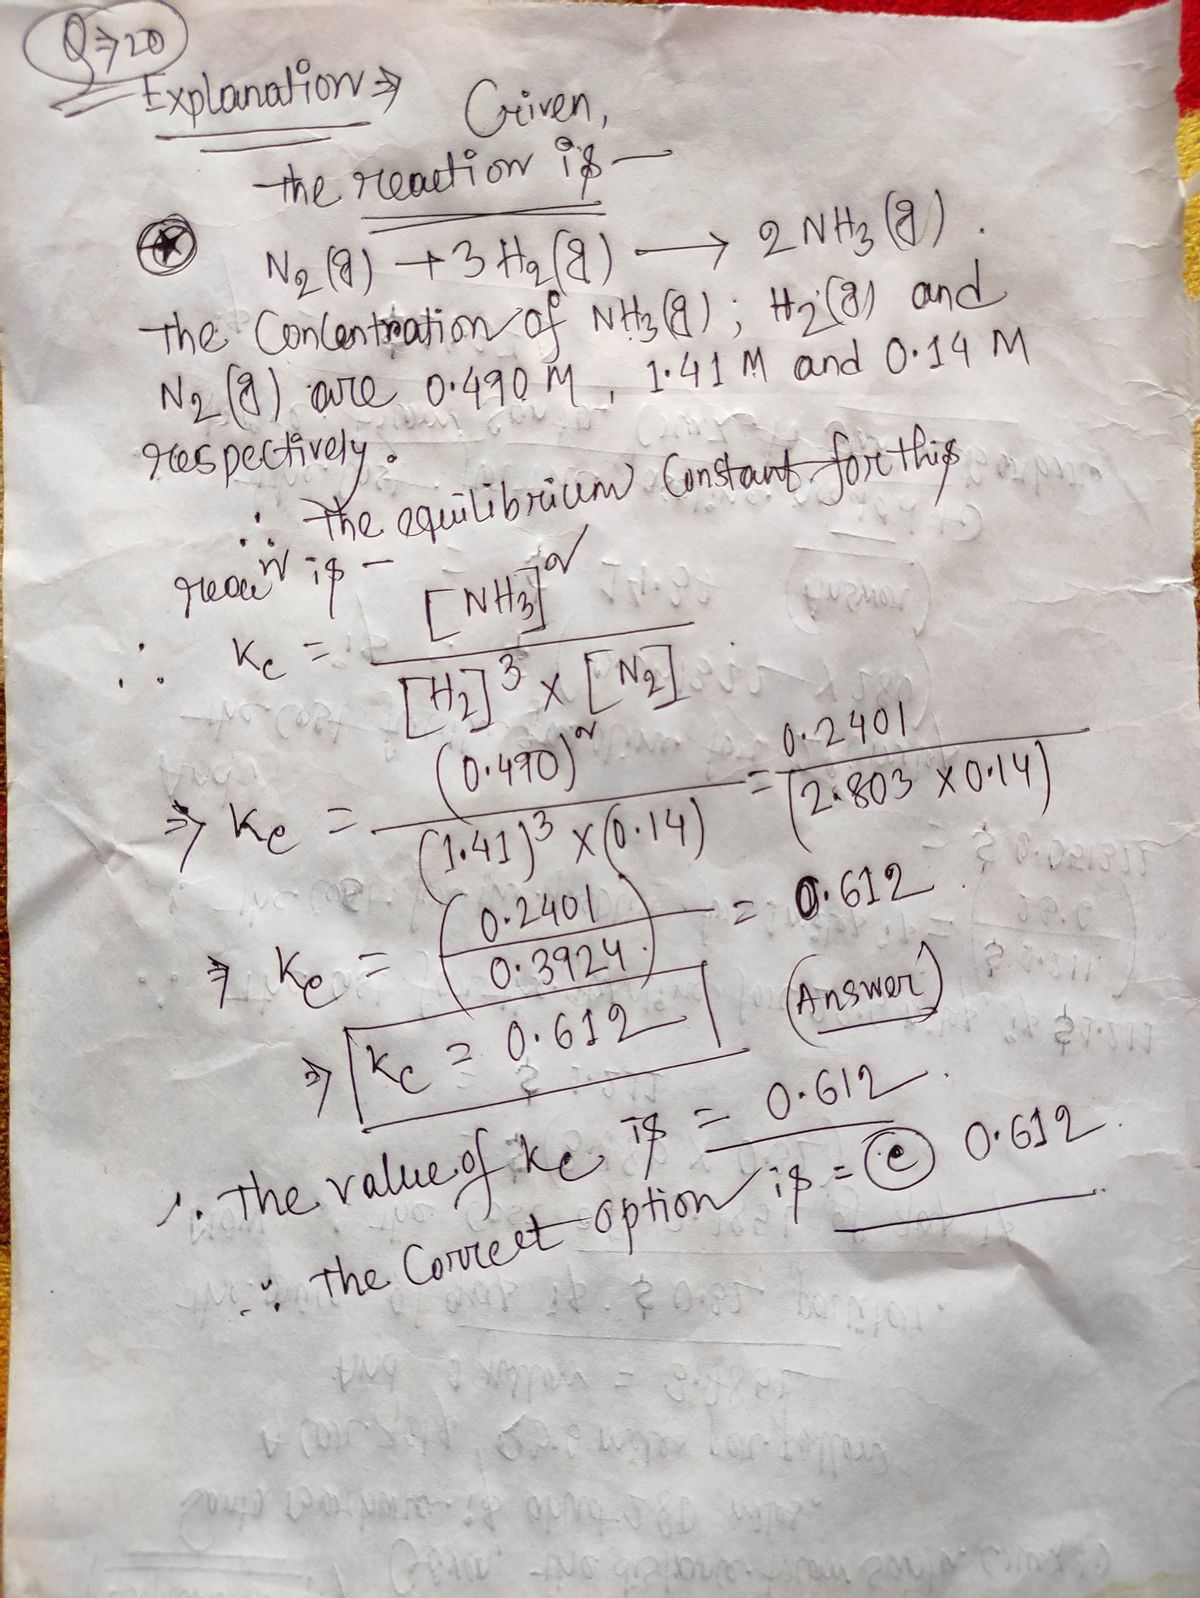 Q⇒20
Explanation⇒ Given,
the reaction is—
N2(g) + 3H2(g) ⟶ 2NH3(g).
The Concentration of NH3(g); H2(g) and
N2(g) are 0.490 M, 1.41 M and 0.14 M
respectively.
∴ The equilibrium Constant for this
reacⁿ is —
∴ Kc = [NH3]² / [H2]³ × [N2]
⇒ Kc = (0.490)² / (1.41)³ × (0.14) = 0.2401 / (2.803 × 0.14)
⇒ Kc = (0.2401 / 0.3924) = 0.612
⇒ Kc = 0.612 (Answer)
∴ The value of Kc is = 0.612.
∴ The Correct option is = (e) 0.612.